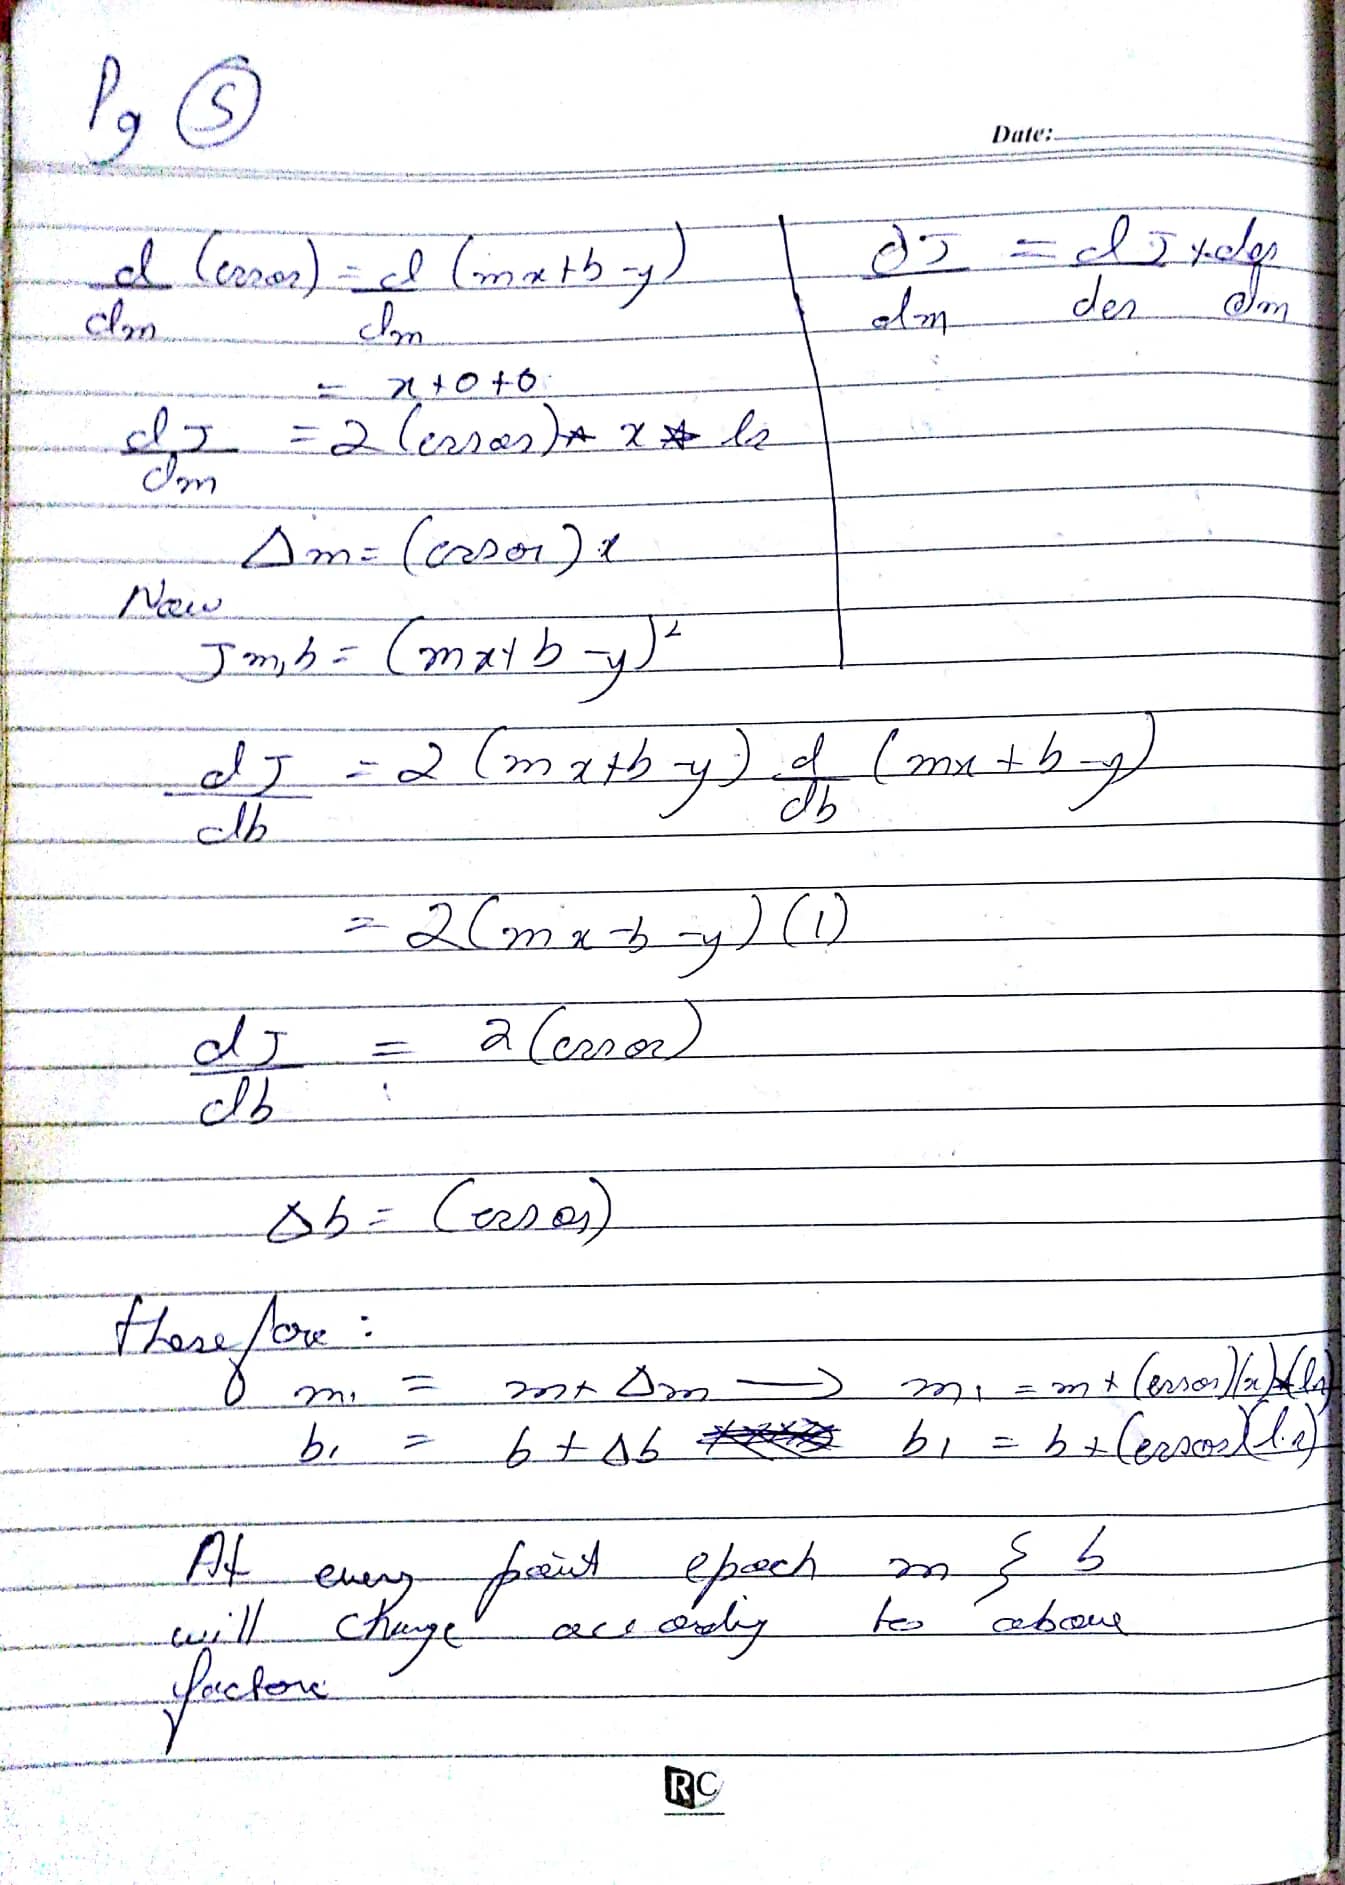 Pg 5
Date:
d/dm (error) = d/dm (mx+b-y)
= x+0+0
dJ/dm = 2(error)* x * lr
Δm = (error)x
dJ/dm = dJ/der × der/dm
Now
Jm,b = (mx+b-y)²
dJ/db = 2(mx+b-y) d/db (mx+b-y)
= 2(mx-b-y)(1)
dJ/db = 2(error)
Δb = (error)
therefore:
m1 = m+Δm → m1 = m+(error)(x)*(lr)
b1 = b+Δb b1 = b+(error)(l.r)
At every point epoch m & b
will change accordig to above
factore
RC